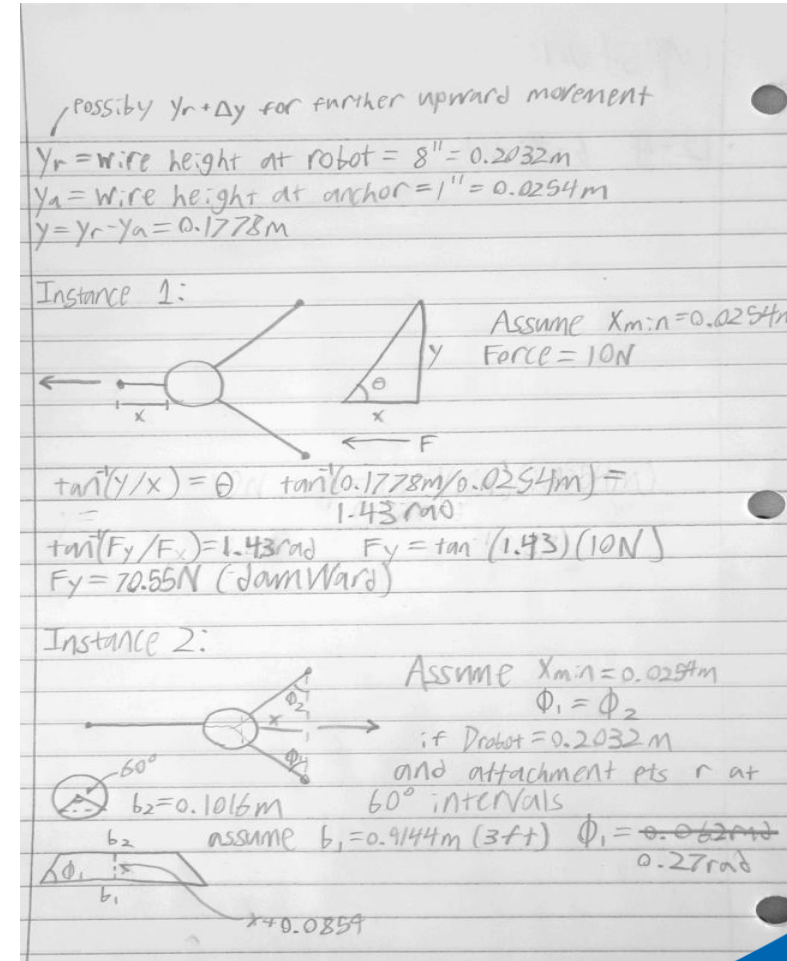 possiby Yr + Δy for further upward movement
Yr = wire height at robot = 8" = 0.2032m
Ya = wire height at anchor = 1" = 0.0254m
y = Yr - Ya = 0.1778m
Instance 1:
Assume Xmin = 0.0254m
Force = 10N
y
θ
x
x
F
tan⁻¹(y/x) = θ tan⁻¹(0.1778m/0.0254m) =
=
1.43 rad
tan⁻¹(Fy/Fx) = 1.43rad Fy = tan (1.43)(10N)
Fy = 70.55N (downward)
Instance 2:
Assume Xmin = 0.0254m
Φ₁ = Φ₂
Φ₂
x
Φ₁
if Drobot = 0.2032m
and attachment pts r at
60° intervals
60°
b₂ = 0.1016m
assume b₁ = 0.9144m (3ft) Φ₁ = 0.062rad
0.27rad
b₂
Φ₁
x
b₁
x+0.0859